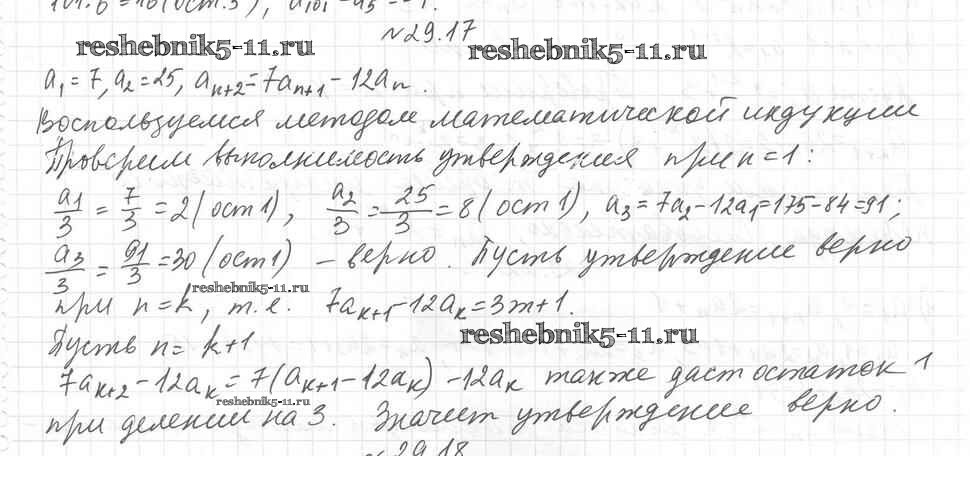 101:6=16(ост.5), a₁₀₁=a₅=-1.
№29.17
reshebnik5-11.ru
reshebnik5-11.ru
a₁=7, a₂=25, aₙ₊₂=7aₙ₊₁-12aₙ.
Воспользуемся методом математической индукции
Проверим выполнимость утверждения при n=1:
a₁/3 = 7/3 = 2(ост1), a₂/3 = 25/3 = 8(ост1), a₃=7a₂-12a₁=175-84=91;
a₃/3 = 91/3 = 30(ост1) - верно. Пусть утверждение верно
reshebnik5-11.ru
при n=k, т.е. 7aₖ₊₁-12aₖ=3m+1.
reshebnik5-11.ru
Пусть n=k+1
7aₖ₊₂-12aₖ=7(aₖ₊₁-12aₖ)-12aₖ также даст остаток 1
reshebnik5-11.ru
при делении на 3. Значит утверждение верно.
№29.18